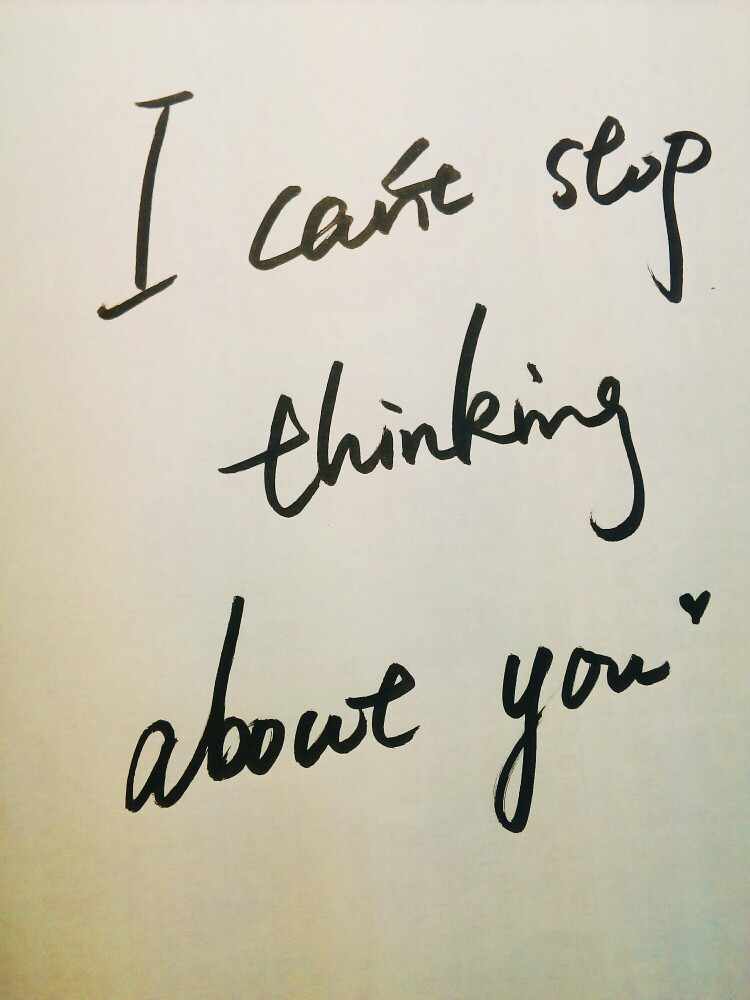 I can't stop
thinking
about you♥